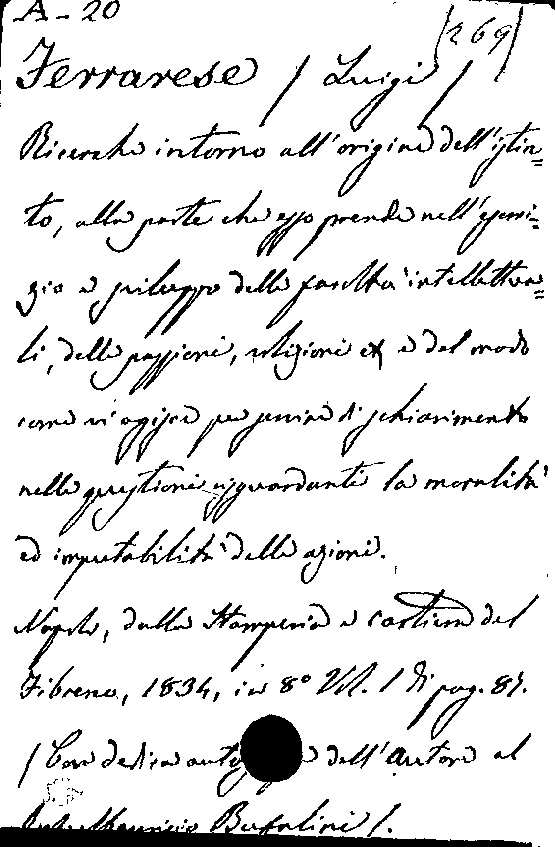 A - 20
(269)
Ferrarese / Luigi /
Ricerche intorno all'origine dell'istin=
to, alla parte che esso prende nell'eserci=
zio e sviluppo delle facoltà intellettua=
li, delle passioni, religioni e del modo
come vi agisce per servire di schiarimento
nelle questioni risguardanti la moralità
ed imputabilità delle azioni.
Napoli, dalla Stamperia e cartiera del
Fibreno, 1834, in 8° Vol. 1 di pag. 87.
/ Con dedica dell'autore al
Maurizio Bufalini /.